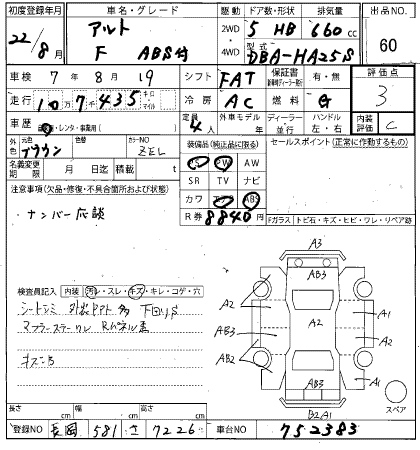 初度登録年月
車名・グレード
駆動
ドア数/形状
排気量
出品NO.
22/8月
アルト
F ABS付
2WD
4WD
5 HB
660 cc
型式
DBA-HA25S
60
車検 7年 8月 19日
シフト FAT
保証書
有・無
評価点
3
走行 10万7千435 キロ マイル
冷房 AC
燃料 G
車歴
自・レンタ・事業用( )
定員 4人
外車モデル 年
ディーラー・並行
ハンドル
左・右
内装評価 C
外色
元色 ブラウン
色替
カラーNO ZEL
装備品(純正品に限る)
セールスポイント(正常に作動するもの)
名義変更期限 月 日迄
積載 t
PS PW AW
SR TV ナビ
カワ エアB ABS
R券 8840円
注意事項(欠品・修復・不具合箇所および状態)
ナンバー応談
Fガラス トビ石・キズ・ヒビ・ワレ・リペア跡
検査員記入
内装 汚・スレ・キズ・キレ・コゲ・穴
シートシミ 外装 多 下回りS
マフラーステーワレ Rパネル歪
A3
AB3
A2
AB3
AB2
A2
A1
A2
A1
AB3
B2A1
スペア
長さ cm
幅 cm
高さ cm
登録NO 長岡 581 さ 7226
車台NO 752383